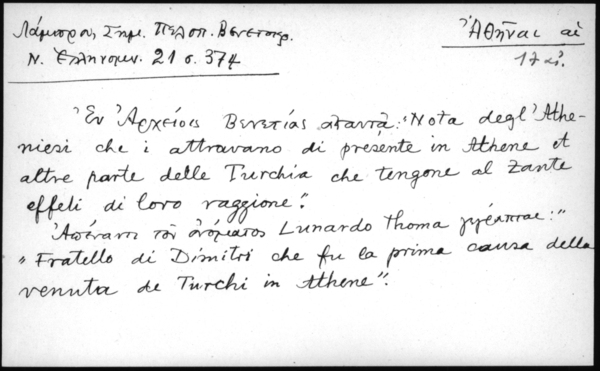 Λάμπρου, Σημ. Πελοπ. Βενετοκρ.
Ν. Ἑλληνομν. 21 σ. 374
Ἀθῆναι αἱ
17 αἰ.
Ἐν Ἀρχείοις Βενετίας ἀπαντᾷ: "Nota degl'Athe-
niesi che i attravano di presente in Athene et
altre parte delle Turchia che tengone al Zante
effeli di loro raggione".
Ἀπέναντι τοῦ ὀνόματος Lunardo Thoma γράφεται:"
"Fratello di Dimitri che fu la prima causa della
venuta de Turchi in Athene".